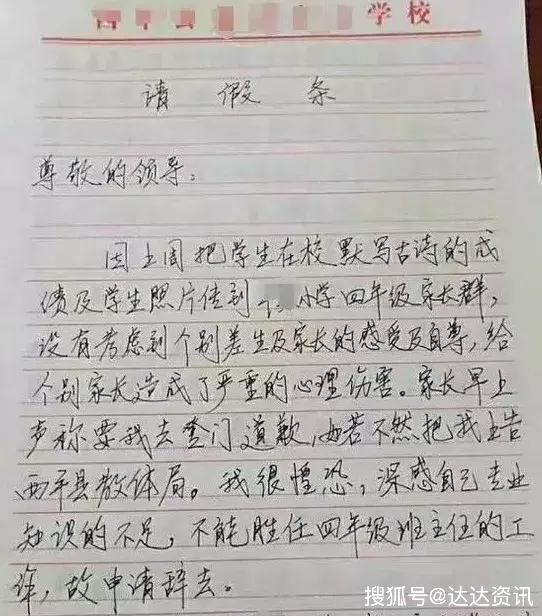 学校
请假条
尊敬的领导：
因上周把学生在校默写古诗的成
绩及学生照片传到 小学四年级家长群，
没有考虑到个别差生及家长的感受及自尊，给
个别家长造成了严重的心理伤害。家长早上
声称要我去登门道歉，如若不然把我上告
西平县教体局。我很惶恐，深感自己专业
知识的不足，不能胜任四年级班主任的工
作，故申请辞去。
搜狐号@达达资讯